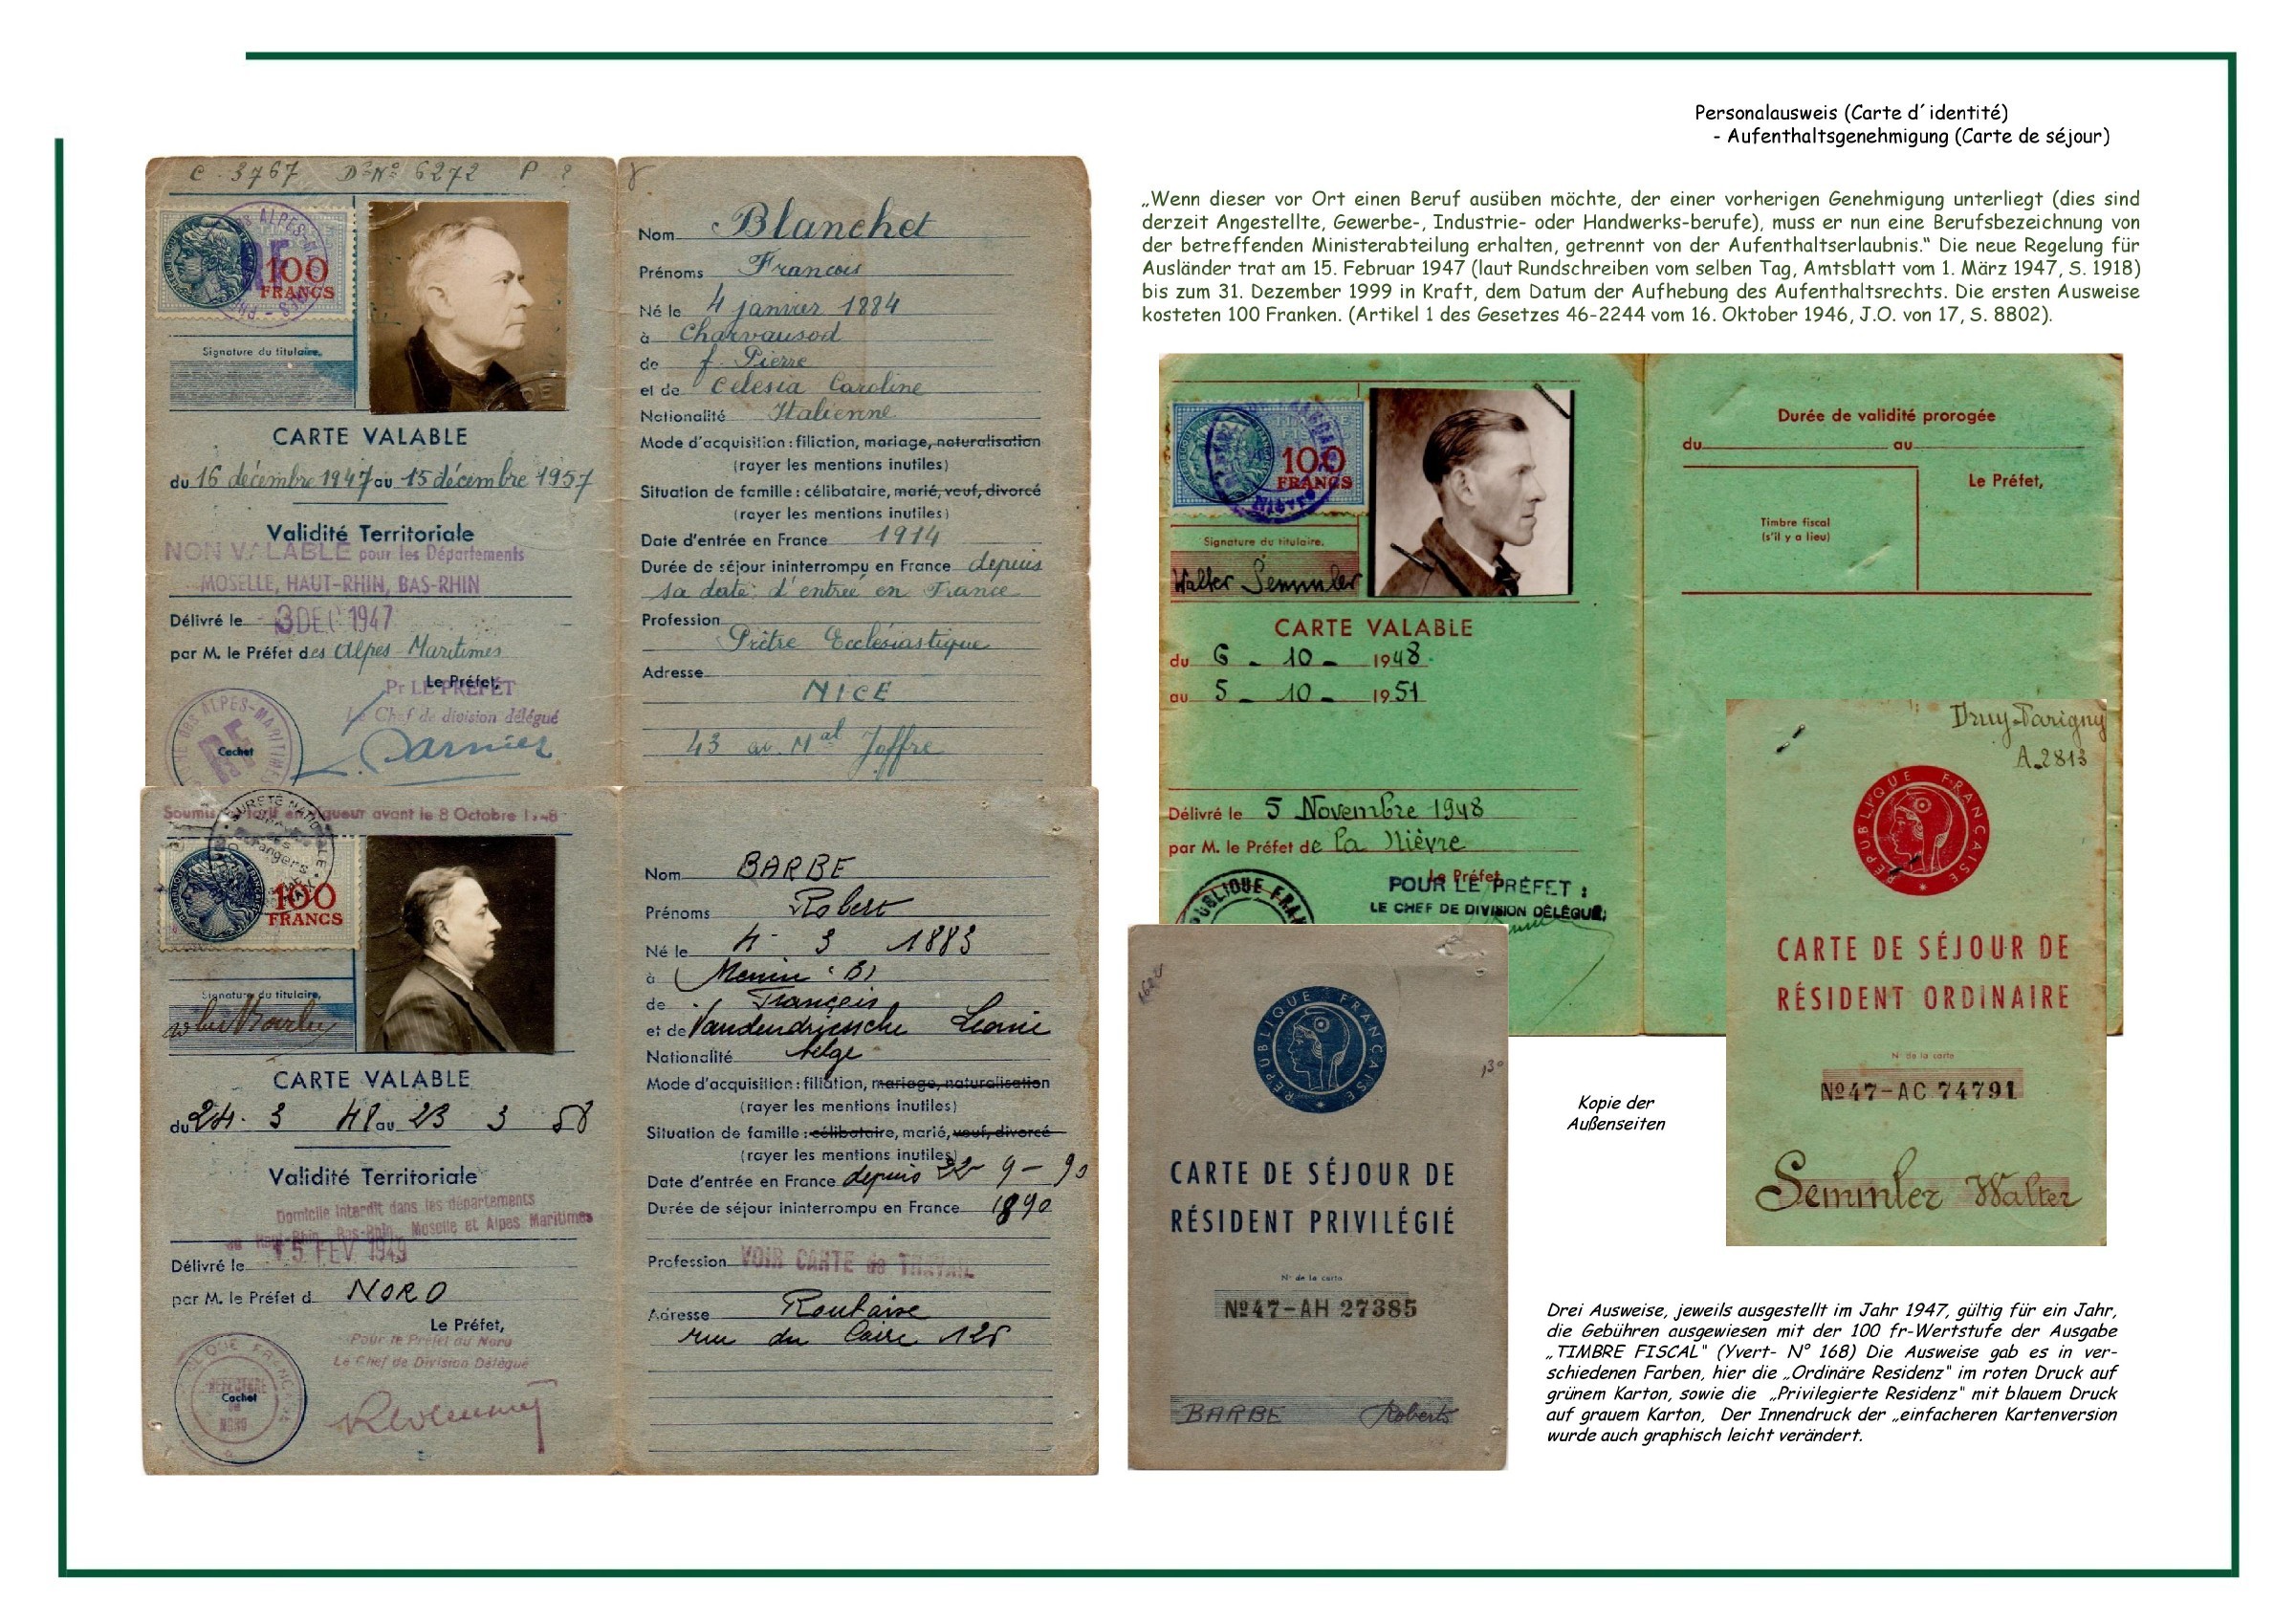 Personalausweis (Carte d´identité)
- Aufenthaltsgenehmigung (Carte de séjour)
„Wenn dieser vor Ort einen Beruf ausüben möchte, der einer vorherigen Genehmigung unterliegt (dies sind
derzeit Angestellte, Gewerbe-, Industrie- oder Handwerks-berufe), muss er nun eine Berufsbezeichnung von
der betreffenden Ministerabteilung erhalten, getrennt von der Aufenthaltserlaubnis.“ Die neue Regelung für
Ausländer trat am 15. Februar 1947 (laut Rundschreiben vom selben Tag, Amtsblatt vom 1. März 1947, S. 1918)
bis zum 31. Dezember 1999 in Kraft, dem Datum der Aufhebung des Aufenthaltsrechts. Die ersten Ausweise
kosteten 100 Franken. (Artikel 1 des Gesetzes 46-2244 vom 16. Oktober 1946, J.O. von 17, S. 8802).
C. 3767 Dr No 6272 P
100
FRANCS
Signature du titulaire,
CARTE VALABLE
du 16 décembre 1947 au 15 décembre 1957
Validité Territoriale
NON VALABLE pour les Départements
MOSELLE, HAUT-RHIN, BAS-RHIN
Délivré le 3 DEC 1947
par M. le Préfet des Alpes Maritimes
Le Préfet,
Pr LE PRÉFET
Le Chef de division délégué
ALPES-MARITIMES
RF
Cachet
Nom Blanchet
Prénoms Francois
Né le 4 janvier 1884
à Charvausod
de f. Pierre
et de Celesia Caroline
Nationalité Italienne
Mode d'acquisition : filiation, mariage, naturalisation
(rayer les mentions inutiles)
Situation de famille : célibataire, marié, veuf, divorcé
(rayer les mentions inutiles)
Date d'entrée en France 1914
Durée de séjour ininterrompu en France depuis
sa date d'entrée en France
Profession
Prêtre Ecclésiastique
Adresse
NICE
43 av. Mal Joffre
Soumis au Tarif en vigueur avant le 8 Octobre 1948
100
FRANCS
Signature du titulaire,
CARTE VALABLE
du 24. 3 48 au 23 3 58
Validité Territoriale
Domicile interdit dans les départements
du Haut-Rhin, Bas-Rhin, Moselle et Alpes Maritimes
15 FEV 1949
Délivré le
par M. le Préfet d NORD
Le Préfet,
Pour le Préfet du Nord
Le Chef de Division Délégué
Cachet
Nom BARBE
Prénoms Robert
Né le 4 3 1883
à Menin
de François
et de Vandendriessche Leonie
Nationalité belge
Mode d'acquisition : filiation, mariage, naturalisation
(rayer les mentions inutiles)
Situation de famille : célibataire, marié, veuf, divorcé
(rayer les mentions inutiles)
Date d'entrée en France depuis 22 9 - 90
Durée de séjour ininterrompu en France 1890
Profession VOIR CARTE de TRAVAIL
Adresse Roubaix
rue du Caire 126
100
FRANCS
Signature du titulaire,
Walter Semmler
CARTE VALABLE
du 6 - 10 - 1948
au 5 - 10 - 1951
Délivré le 5 Novembre 1948
par M. le Préfet de la Nièvre
Le Préfet
POUR LE PRÉFET :
LE CHEF DE DIVISION DÉLÉGUÉ,
Durée de validité prorogée
du au
Le Préfet,
Timbre fiscal
(s'il y a lieu)
Druy-Parigny
A.2813
RÉPUBLIQUE FRANÇAISE
CARTE DE SÉJOUR DE
RÉSIDENT ORDINAIRE
N° de la carte
No47-AC 74791
Semmler Walter
RÉPUBLIQUE FRANÇAISE
130
CARTE DE SÉJOUR DE
RÉSIDENT PRIVILÉGIÉ
N° de la carte
No47-AH 27385
BARBE Roberts
Kopie der
Außenseiten
Drei Ausweise, jeweils ausgestellt im Jahr 1947, gültig für ein Jahr,
die Gebühren ausgewiesen mit der 100 fr-Wertstufe der Ausgabe
„TIMBRE FISCAL“ (Yvert- N° 168) Die Ausweise gab es in ver-
schiedenen Farben, hier die „Ordinäre Residenz“ im roten Druck auf
grünem Karton, sowie die „Privilegierte Residenz“ mit blauem Druck
auf grauem Karton, Der Innendruck der „einfacheren Kartenversion
wurde auch graphisch leicht verändert.